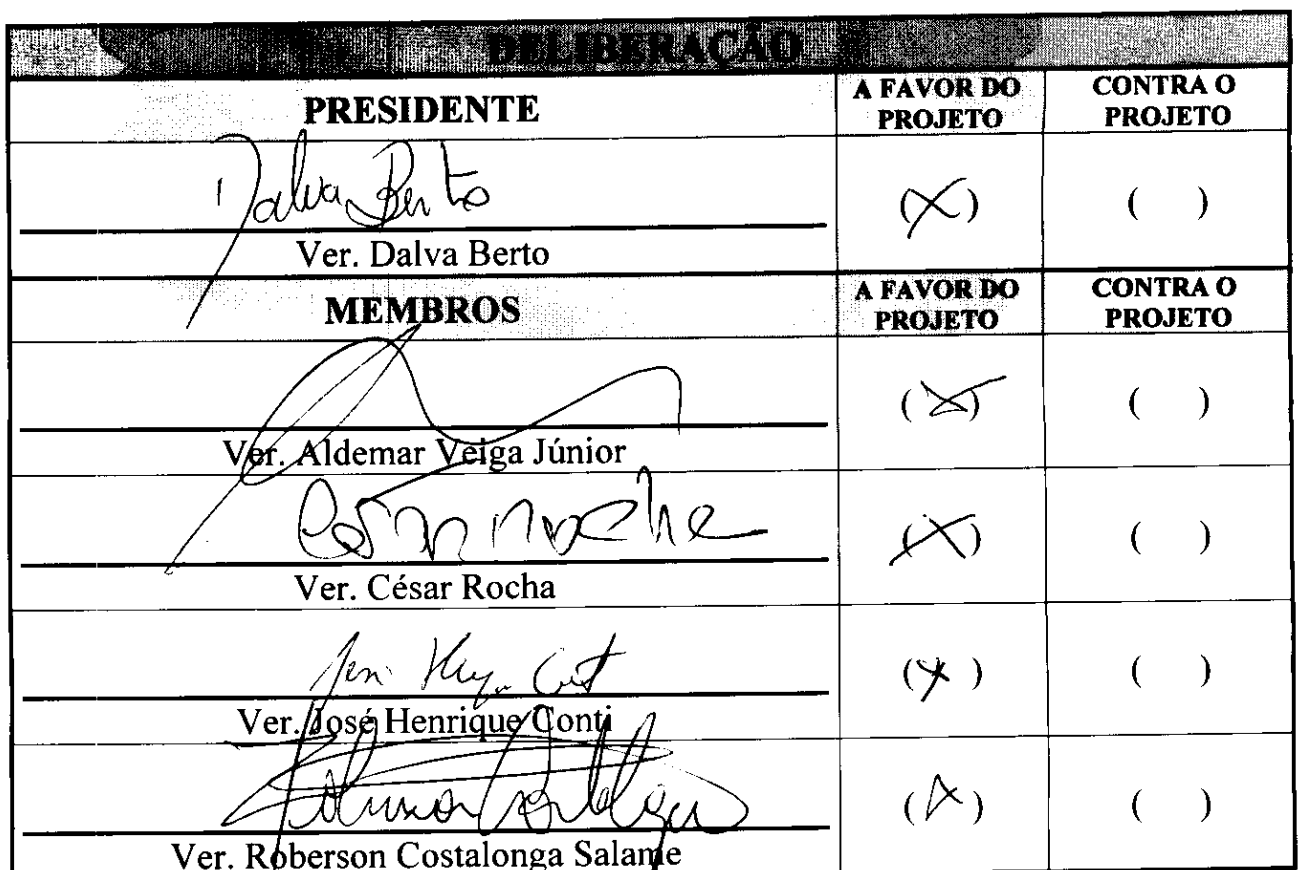 DELIBERAÇÃO
PRESIDENTE A FAVOR DO PROJETO CONTRA O PROJETO
Dalva Berto (X) ( )
Ver. Dalva Berto
MEMBROS A FAVOR DO PROJETO CONTRA O PROJETO
(X) ( )
Ver. Aldemar Veiga Júnior
(X) ( )
Ver. César Rocha
(X) ( )
Ver. José Henrique Conti
(X) ( )
Ver. Roberson Costalonga Salame